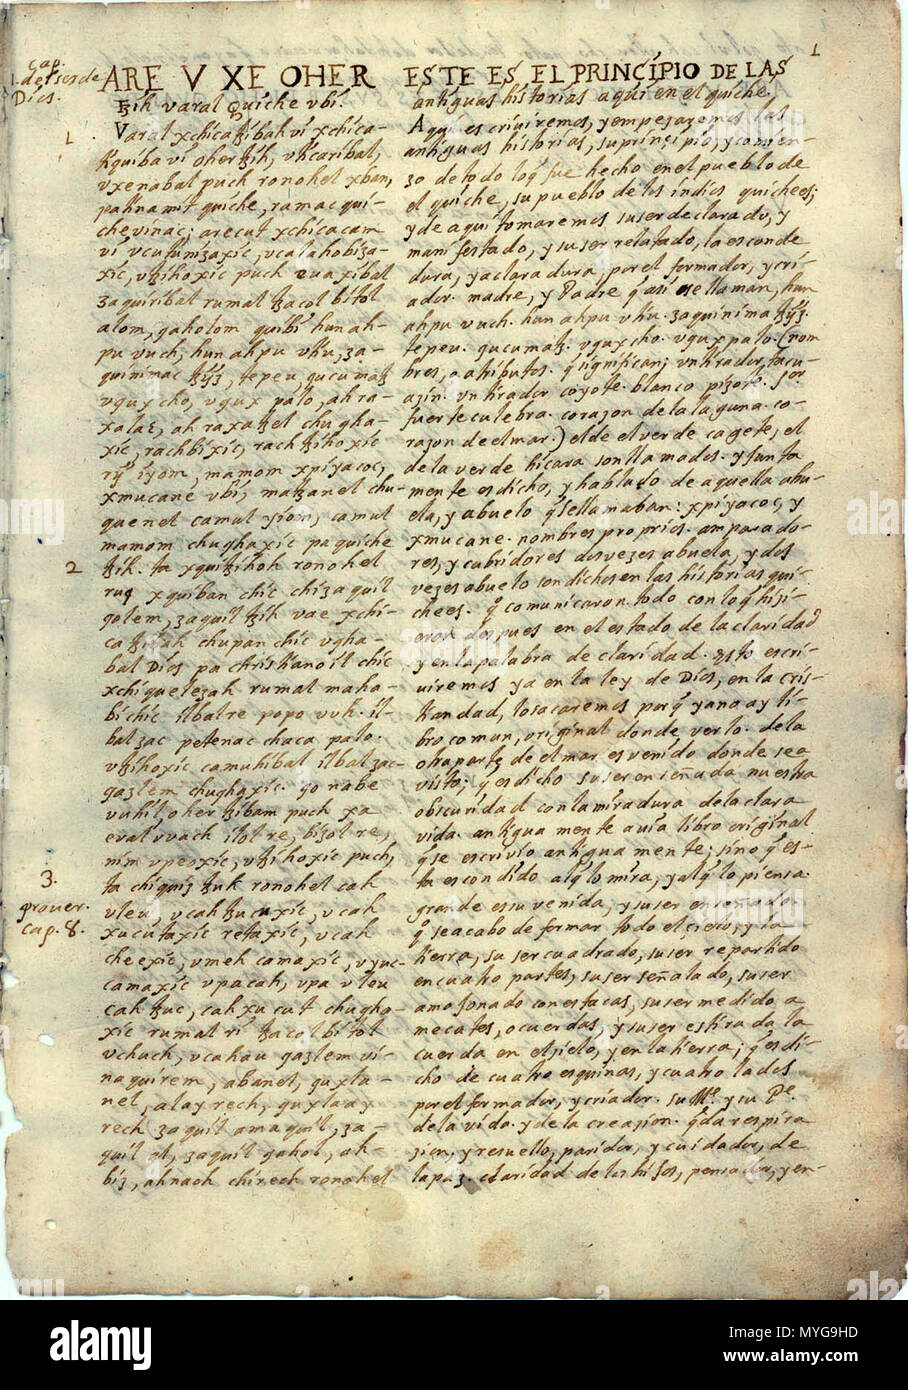 1
cap.
del ser de
Dios.
ARE V XE OHER
tzih varal quiche vbi.
1.
Varal xchicatzibah vi xchica-
tiquiba vi oher tzih, vticaribal,
vxenabal puch ronohel xban,
pa tinamit quiche, ramac qui-
che vinac; arecut xchicacam
vi vcutunizaxic, vcalahobiza-
xic, vtzihoxic puch euaxibal
zaquiribal rumal tzacol bitol
alom, qaholom quibi hun ah-
pu vuch, hun ahpu vtiu, za-
quinimac tzyz, tepeu, qucumatz
vqux cho, vqux palo, ah ra-
xa lac, ah raxa tzel chugha-
xic, rachbixic, rach tzihoxic
rij iyom, mamom xpiyacoc,
xmucane vbi, matzanel chu-
quenel camul iyom, camul
mamom chughaxic pa quiche
2
tzih. ta xquitzihoh ronohel
ruq xquiban chic chi zaquil
qolem, zaquil tzih vae xchi-
catzibah chupan chic vgha-
bal Dios pa christianoil chic
xchiquelezah rumal maha-
bi chic ilbal re popo vuh. il-
bal zac petenac chaca palo.
vtzihoxic camuhibal ilbal zac-
qazlem chughaxic. go nabe
vuhil, oher tzibam puch xa
eval vvach ilol re, bizol re,
nim vpeoxic, vtzihoxic puch,
3.
ta chiquiz tzuk ronohel cah
prouer.
cap. 8.
vleu, vcah tzucuxic, vcah
xucutaxic retaxic, vcah
cheexic, vmeh camaxic, vyuc-
camaxic vpa cah, vpa vleu
cah tzuc, cah xucut chugha-
xic rumal ri tzacol bitol
vchuch, vcahau qazlem vi-
naquirem, abanel, quxla-
nel, alay rech, quxlaay
rech zaquil amaquil, za-
quil al, zaquil qahol, ah-
biz, ahnaoh chirech ronohel
ESTE ES EL PRINCIPIO DE LAS
antiguas historias aqui en el quiche.
Aqui escriuiremos, y empezaremos las
antiguas historias, su principio, y comien-
zo de todo lo q̃ fue hecho en el pueblo de
el quiche, su pueblo de los indios quichees;
y de aqui tomaremos su ser declarado, y
manifestado, y su ser relatado, la esconde
dura, y aclaradura, por el formador, y cri-
ador. madre, y Padre q̃ asi se llaman, hun
ahpu vuch. hun ahpu vtiu. zaquinima tzyz.
tepeu. qucumatz. vqux cho. vqux palo. (nom
bres, o atributos. q̃ significan; vn tirador tacu-
azin. vn tirador coyote. blanco pizote. Sor
fuerte culebra. corazon de la laguna. co-
razon de el mar.) el de el verde cagete, el
de la verde hicara son llamados. y junta
mente es dicho, y hablado de aquella abu-
ela, y abuelo q̃ se llamaban: xpiyacoc, y
xmucane. nombres proprios. amparado-
res, y cubridores dos vezes abuela, y dos
vezes abuelo son dichos en las historias qui-
chees. q̃ comunicaron todo con lo q̃ hizi-
eron despues en el estado de la claridad
y en la palabra de claridad. Esto escri-
uiremos ya en la ley de Dios, en la cris-
tiandad, lo sacaremos porq̃ ya no ay li-
bro comun, original donde verlo. de la
otra parte de el mar es venido donde sea
visto; q̃ es dicho su ser enseñada nuestra
obscuridad con la miradura de la clara
vida. antiguamente auia libro original
q̃ se escrivio antiguamente; sino q̃ es-
ta escondido al q̃ lo mira, y al q̃ lo piensa.
grande es su venida, y su ser enseñado
q̃ se acabo de formar todo el cielo, y la
tierra, su ser cuadrado, su ser repartido
en cuatro partes, su ser señalado, su ser
amojonado con estacas, su ser medido a
mecates, o cuerdas, y su ser estirada la
cuerda en el cielo, y en la tierra; q̃ es di-
cho de cuatro esquinas, y cuatro lados
por el formador, y criador. su M.e y su P.e
de la vida. y de la creazion. q̃ da respira
zion, y resuello, paridor, y cuidador, de
la paz. claridad de los hijos, pensador, y en-